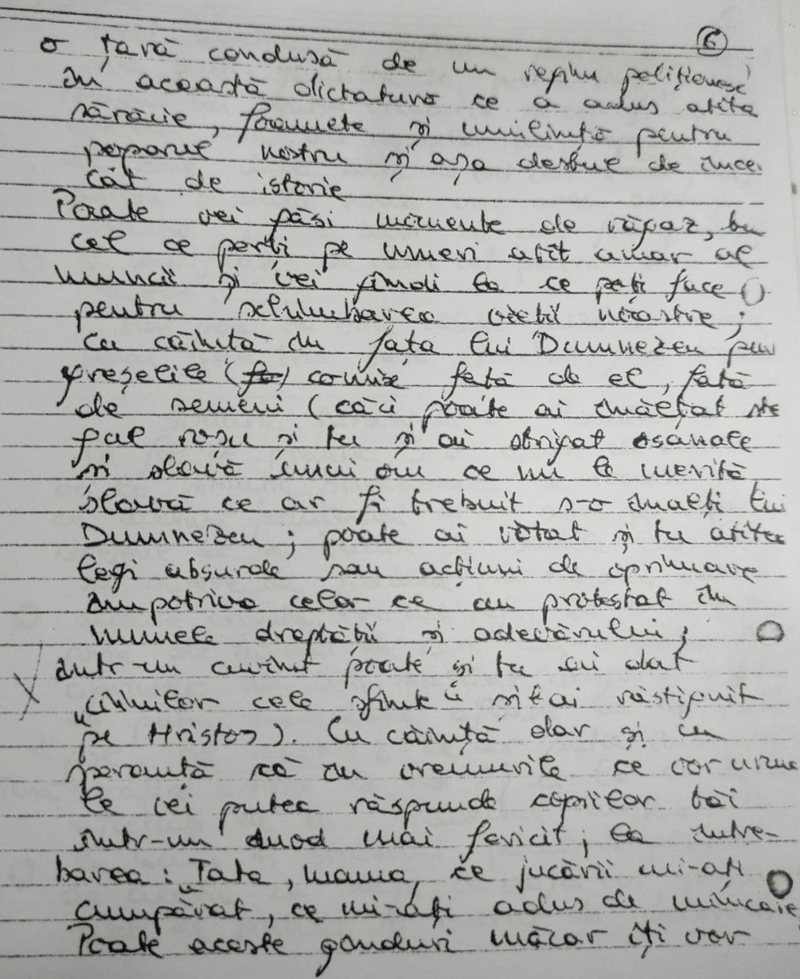 6
o țară condusă de un regim polițienesc
în această dictatura ce a adus atîta
sărăcie, foamete și umilință pentru
poporul nostru și așa destul de încer
cat de istorie
Poate vei găsi momente de răgaz, tu
cel ce porți pe umeri atît amar al
muncii și vei gîndi la ce poți face
pentru schimbarea vieții noastre;
cu căință în fața lui Dumnezeu pen
greșelile comise față de el, față
de semeni (căci poate ai înălțat ste
gul roșu și tu și ai strigat osanale
și slavă unui om ce nu le merită
slavă ce ar fi trebuit s-o înalți lui
Dumnezeu; poate ai votat și tu atîtea
legi absurde sau acțiuni de oprimare
împotriva celor ce au protestat în
numele dreptății și adevărului;
într-un cuvînt poate și tu ai dat
"cîinilor cele sfinte" și l-ai răstignit
pe Hristos). Cu căință dar și cu
speranță că în vremurile ce vor urma
le vei putea răspunde copiilor tăi
într-un mod mai fericit, la între-
barea: "Tata, mama, ce jucării mi-ați
cumpărat, ce mi-ați adus de mîncare
Poate aceste gînduri măcar îți vor